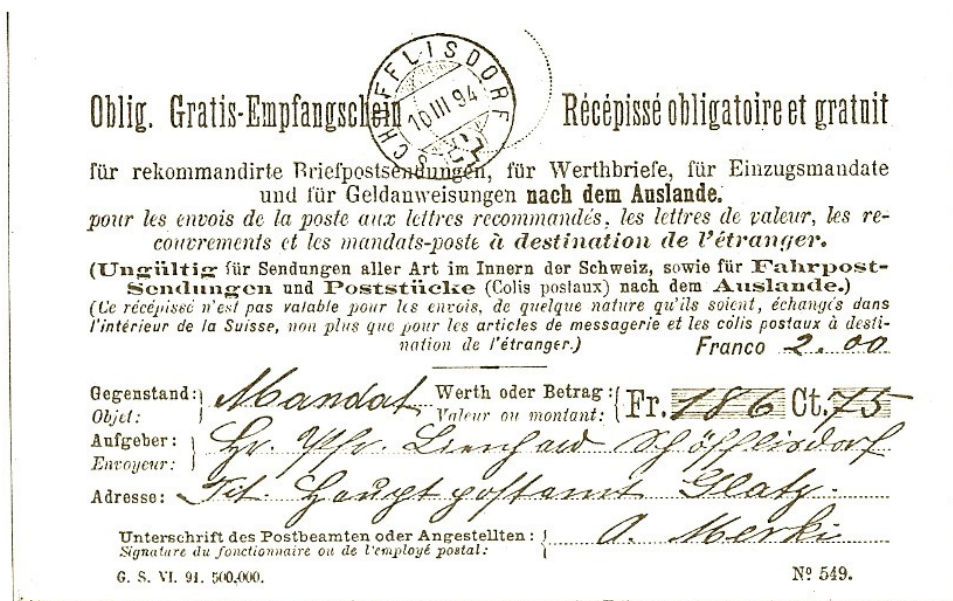 SCHÖFFLISDORF
10 III 94
Oblig. Gratis-Empfangschein Récépissé obligatoire et gratuit
für rekommandirte Briefpostsendungen, für Werthbriefe, für Einzugsmandate
und für Geldanweisungen nach dem Auslande.
pour les envois de la poste aux lettres recommandés, les lettres de valeur, les re-
couvrements et les mandats-poste à destination de l'étranger.
(Ungültig für Sendungen aller Art im Innern der Schweiz, sowie für Fahrpost-
Sendungen und Poststücke (Colis postaux) nach dem Auslande.)
(Ce récépissé n'est pas valable pour les envois, de quelque nature qu'ils soient, échangés dans
l'intérieur de la Suisse, non plus que pour les articles de messagerie et les colis postaux à desti-
nation de l'étranger.)
Franco 2.00
Gegenstand: Mandat Werth oder Betrag: Fr. 186 Ct. 75
Objet: Valeur ou montant:
Aufgeber: Hr. Pfr. Lienhard Schöfflisdorf
Envoyeur:
Adresse: Tit. Hauptpostamt Glatz.
Unterschrift des Postbeamten oder Angestellten: A. Merki
Signature du fonctionnaire ou de l'employé postal:
G. S. VI. 91. 500,000. Nº 549.